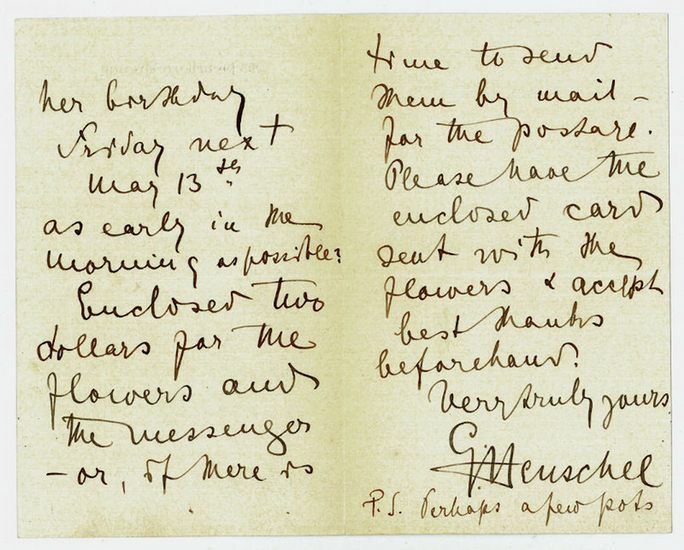 her birthday
Friday next
May 13th
as early in the
morning as possible?
Enclosed two
dollars for the
flowers and
the messenger
- or, if there is
time to send
them by mail -
for the postage.
Please have the
enclosed card
sent with the
flowers & accept
best thanks
beforehand.
Very truly yours
G. Henschel
P.S. Perhaps a few pots